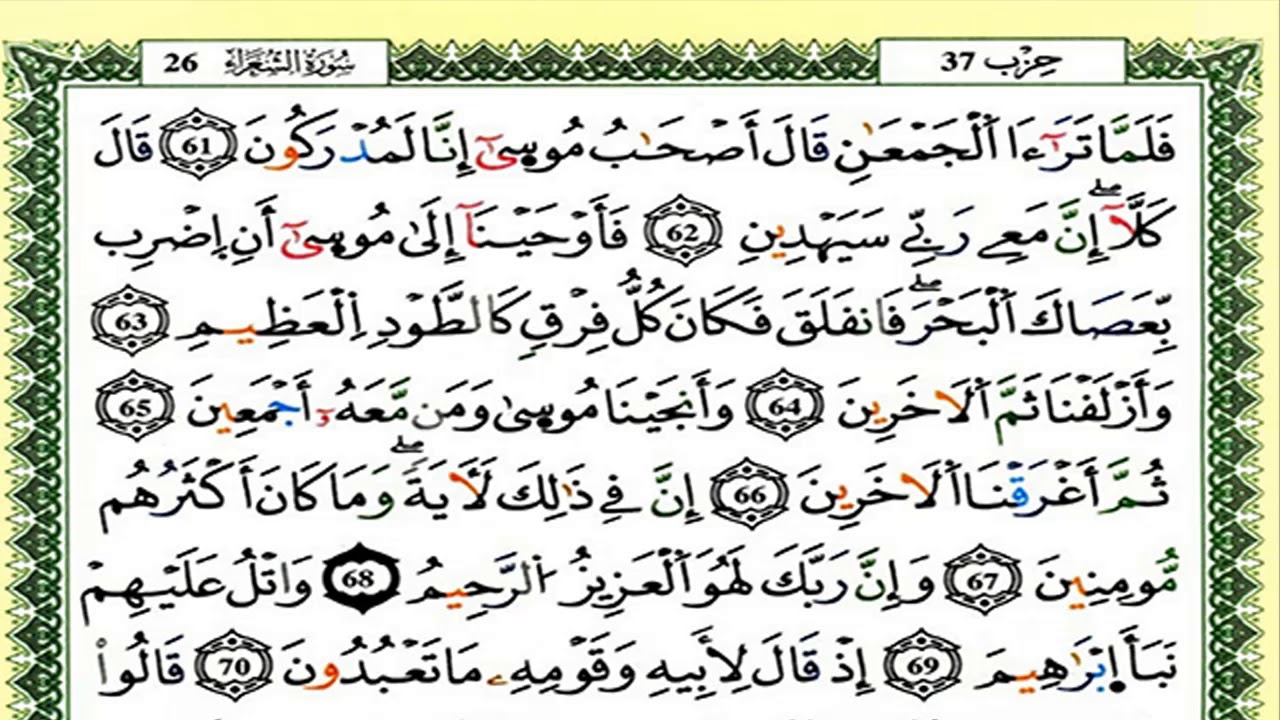 حِزْب 37
سُورَةُ الشُّعَرَاءِ 26
فَلَمَّا تَرَٰٓءَا اَ۬لْجَمْعَٰنِ قَالَ أَصْحَٰبُ مُوس۪ىٰٓ إِنَّا لَمُدْرَكُونَ 61 قَالَ
كَلَّآۖ إِنَّ مَعِے رَبِّے سَيَهْدِينِ 62 فَأَوْحَيْنَآ إِلَىٰ مُوس۪ىٰٓ أَنِ اِ۪ضْرِب
بِّعَصَاكَ اَ۬لْبَحْرَۖ فَانفَلَقَ فَكَانَ كُلُّ فِرْقٖ كَالطَّوْدِ اِ۬لْعَظِيمِ 63
وَأَزْلَفْنَا ثَمَّ اَ۬لَاخَرِينَ 64 وَأَنجَيْنَا مُوس۪ىٰ وَمَن مَّعَهُۥٓ أَجْمَعِينَ 65
ثُمَّ أَغْرَقْنَا اَ۬لَاخَرِينَ 66 إِنَّ فِے ذَٰلِكَ لَأٓيَةٗۖ وَمَا كَانَ أَكْثَرُهُم
مُّومِنِينَ 67 وَإِنَّ رَبَّكَ لَهُوَ اَ۬لْعَزِيزُ اُ۬لرَّحِيمُ 68 وَاتْلُ عَلَيْهِمْ
نَبَأَ إِبْرَٰهِيمَ 69 إِذْ قَالَ لِأَبِيهِ وَقَوْمِهِۦ مَا تَعْبُدُونَ 70 قَالُواْ